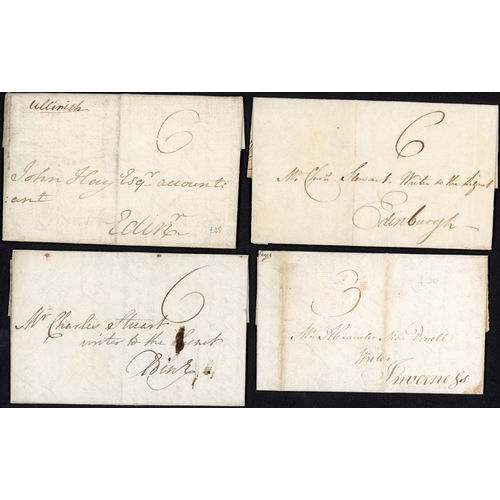 Ullinish
6
John Hay Esqr. account:
:ant
Edinr.
£35
6
Mr. Chas. Stewart, Writer to the Signet
Edinburgh
6
Mr Charles Stuart
writer to the Signet
Edinr
3
Mr. Alexander Macdonell
Writer
Inverness